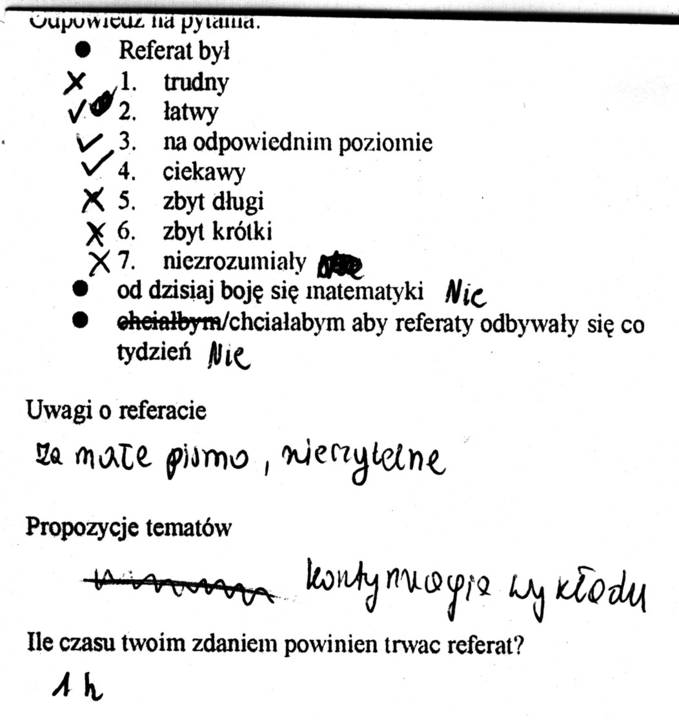 Odpowiedz na pytania.
● Referat był
✗ 1. trudny
✓ 2. łatwy
✓ 3. na odpowiednim poziomie
✓ 4. ciekawy
✗ 5. zbyt długi
✗ 6. zbyt krótki
✗ 7. niezrozumiały
● od dzisiaj boję się matematyki Nie
● chciałbym/chciałabym aby referaty odbywały się co
tydzień Nie
Uwagi o referacie
za małe pismo, nieczytelne
Propozycje tematów
kontynuacja wykładu
Ile czasu twoim zdaniem powinien trwac referat?
1 h